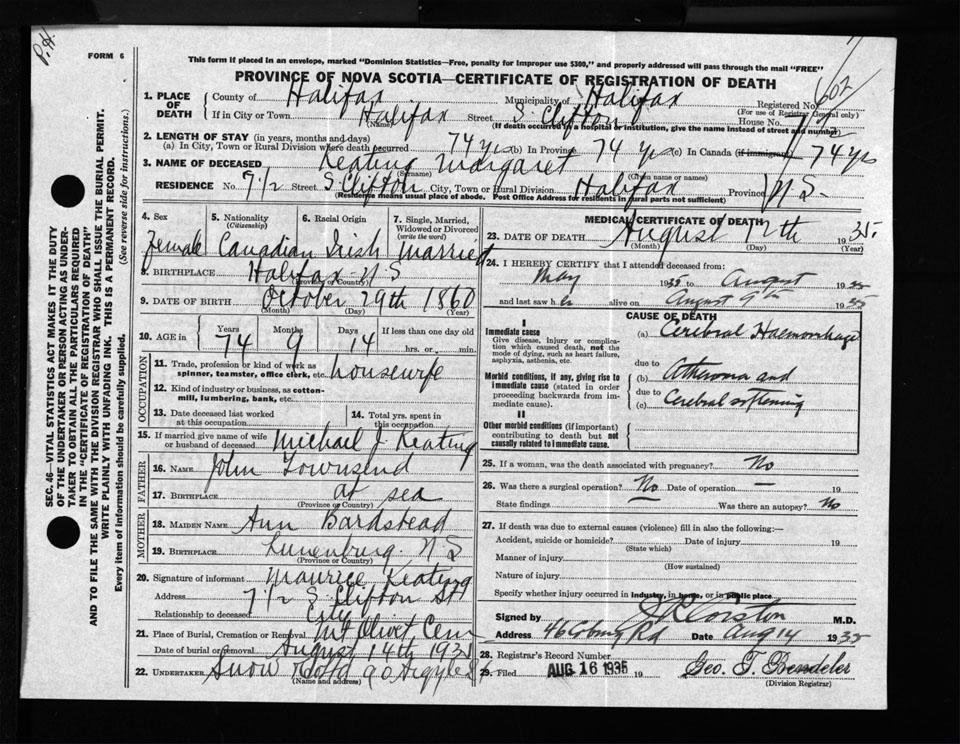 P.H.
FORM 6
This form if placed in an envelope, marked "Dominion Statistics—Free, penalty for improper use $300," and properly addressed will pass through the mail "FREE"
PROVINCE OF NOVA SCOTIA—CERTIFICATE OF REGISTRATION OF DEATH
SEC. 46—VITAL STATISTICS ACT MAKES IT THE DUTY
OF THE UNDERTAKER OR PERSON ACTING AS UNDER-
TAKER TO OBTAIN ALL THE PARTICULARS REQUIRED
IN THE "CERTIFICATE OF REGISTRATION OF DEATH"
AND TO FILE THE SAME WITH THE DIVISION REGISTRAR WHO SHALL ISSUE THE BURIAL PERMIT.
WRITE PLAINLY WITH UNFADING INK. THIS IS A PERMANENT RECORD.
Every item of information should be carefully supplied. (See reverse side for instructions.)
1. PLACE OF DEATH County of Halifax Municipality of Halifax Registered No. 602
(For use of Registrar General only)
If in City or Town Halifax Street S. Clifton House No.
(Name) (If death occurred in a hospital or institution, give the name instead of street and number)
2. LENGTH OF STAY (in years, months and days)
(a) In City, Town or Rural Division where death occurred 74 yrs (b) In Province 74 yrs (c) In Canada (if immigrant) 74 yrs
3. NAME OF DECEASED Keating Margaret
(Surname) (Given name or names)
RESIDENCE No. 7 1/2 Street S Clifton City, Town or Rural Division Halifax Province N S
(Residence means usual place of abode. Post Office Address for residents in rural parts not sufficient)
4. Sex 5. Nationality (Citizenship) 6. Racial Origin 7. Single, Married, Widowed or Divorced (write the word)
Female Canadian Irish Married
8. BIRTHPLACE Halifax N S
(Province or Country)
9. DATE OF BIRTH October 29th 1860
(Month) (Day) (Year)
10. AGE in Years 74 Months 9 Days 14 If less than one day old hrs. or min.
OCCUPATION
11. Trade, profession or kind of work as spinner, teamster, office clerk, etc. housewife
12. Kind of industry or business, as cotton-mill, lumbering, bank, etc.
13. Date deceased last worked at this occupation 14. Total yrs. spent in this occupation
15. If married give name of wife or husband of deceased Michael J. Keating
FATHER
16. NAME John Townsend
17. BIRTHPLACE at sea
(Province or Country)
MOTHER
18. MAIDEN NAME Ann Bardstead
19. BIRTHPLACE Lunenburg. N S
(Province or Country)
20. Signature of informant Maurice Keating
Address 7 1/2 S. Clifton St
Relationship to deceased
21. Place of Burial, Cremation or Removal Mt Olivet Cem
Date of burial or removal August 14th 1935
22. UNDERTAKER Snow & Co Ltd 90 Argyle
(Name and address)
MEDICAL CERTIFICATE OF DEATH
23. DATE OF DEATH August 12th 1935.
(Month) (Day) (Year)
24. I HEREBY CERTIFY that I attended deceased from:
May 1935 to August 1935
and last saw her alive on August 9th 1935
CAUSE OF DEATH
I
Immediate cause
Give disease, injury or complication which caused death, not the mode of dying, such as heart failure, asphyxia, asthenia, etc.
(a) Cerebral Haemorrhage
due to
Morbid conditions, if any, giving rise to immediate cause (stated in order proceeding backwards from immediate cause).
(b) Atheroma and
due to
(c) Cerebral softening
II
Other morbid conditions (if important) contributing to death but not causally related to immediate cause.
25. If a woman, was the death associated with pregnancy? No
26. Was there a surgical operation? No Date of operation — 19
State findings Was there an autopsy? No
27. If death was due to external causes (violence) fill in also the following:—
Accident, suicide or homicide? Date of injury 19
(State which)
Manner of injury
(How sustained)
Nature of injury
Specify whether injury occurred in industry, in home, or in public place
Signed by M.D.
Address 46 Coburg Rd Date Aug 14 1935
28. Registrar's Record Number
29. Filed AUG 16 1935 19 Geo. T. Bendeler
(Division Registrar)